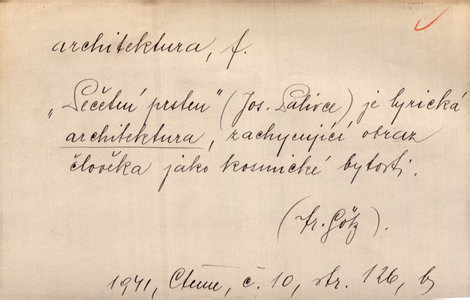 architektura, f.
„Pečetní prsten" (Jos. Palivce) je lyrická
architektura, zachycující obraz
člověka jako kosmické bytosti.
(Fr. Götz).
1941, Čteme, č. 10, str. 126, b